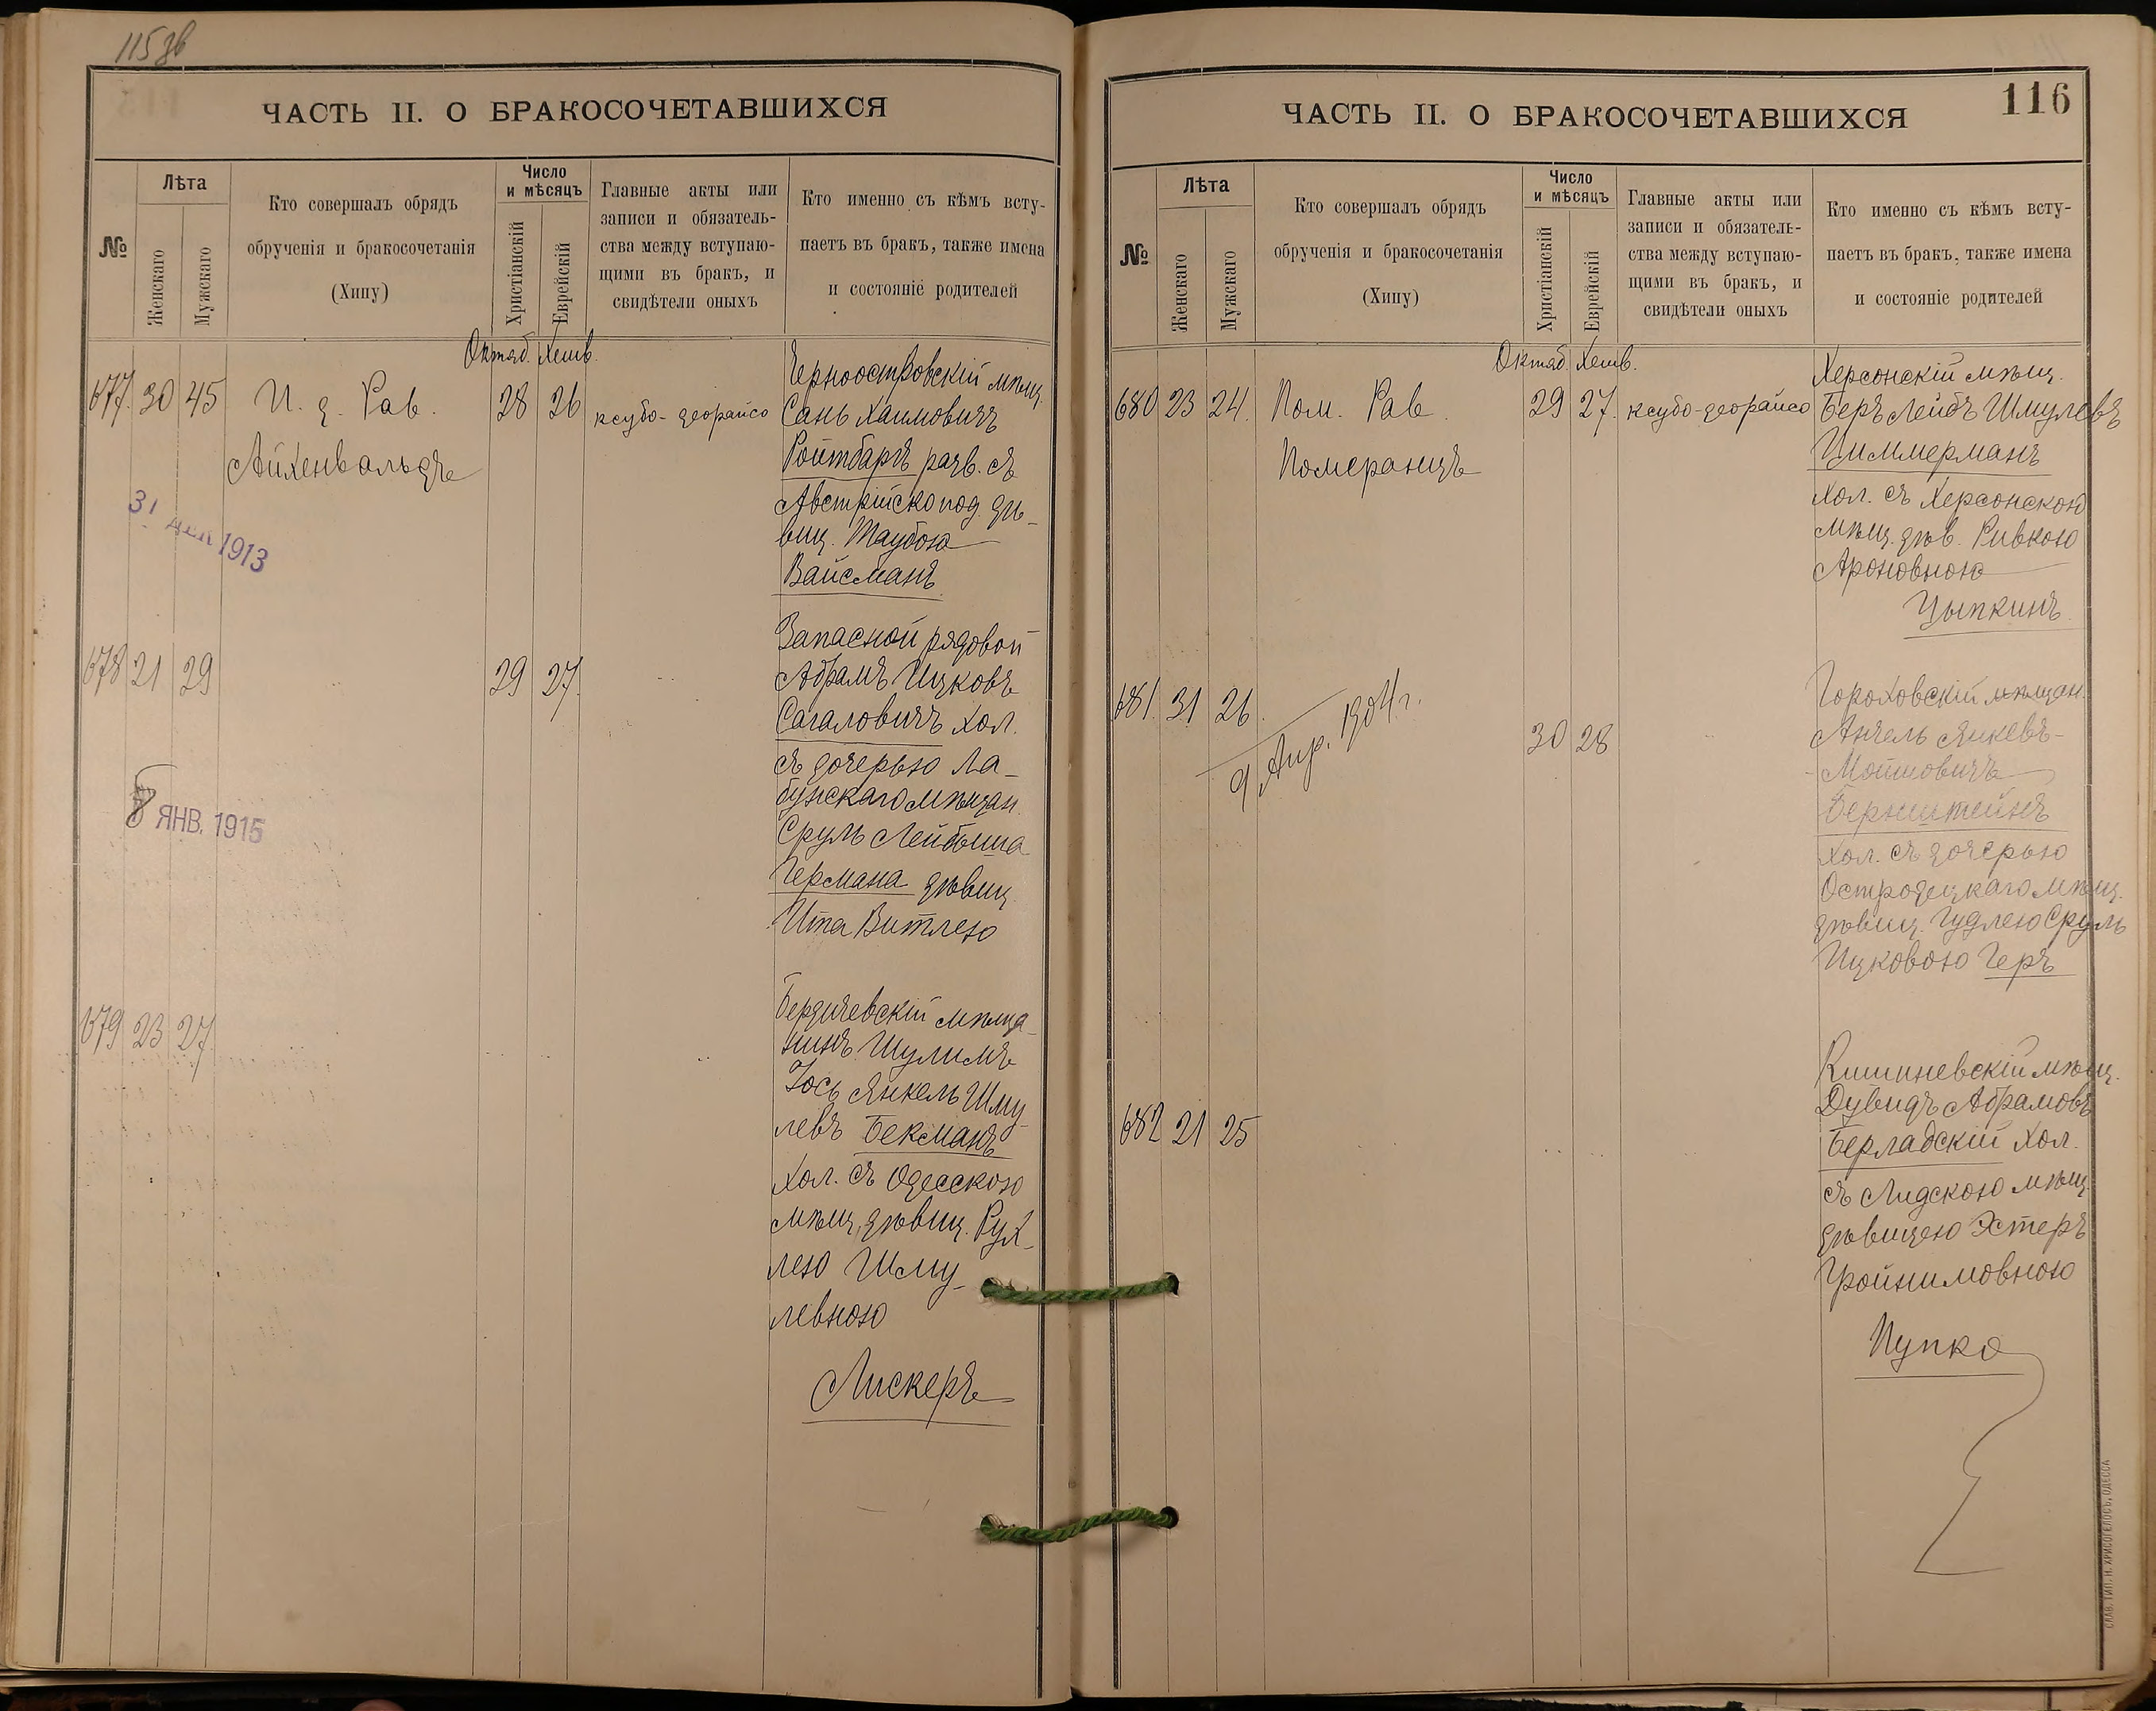 115 зв
ЧАСТЬ II. О БРАКОСОЧЕТАВШИХСЯ
№
Лѣта
Женскаго
Мужскаго
Кто совершалъ обрядъ
обрученія и бракосочетанія
(Хипу)
Число
и мѣсяцъ
Христіанскій
Еврейскій
Главные акты или
записи и обязатель-
ства между вступаю-
щими въ бракъ, и
свидѣтели оныхъ
Кто именно съ кѣмъ всту-
паетъ въ бракъ, также имена
и состояніе родителей
Октяб. Хешв.
677. 30 45 И. д. Рав. 28 26 ксубо-деорайсо
Айхенвальдъ
31 ДЕК 1913
Черноостровскій мѣщ.
Сань Хаимовичъ
Ройтбаргъ разв. съ
Австрійско под. дѣ-
виц. Таубою
Вайсманъ
678 21 29 29 27.
8 ЯНВ. 1915
Запасной рядовой
Абрамъ Ицковъ
Сагаловичъ хол.
съ дочерью Ла-
бунскаго мѣщан.
Сруль Лейбыша
Германа дѣвиц.
Ита Витлею
679 23 27
Бердичевскій мѣща-
нинъ Шулимъ
Іось Янкель Шму-
левъ Бекманъ
хол. съ Одесскою
мѣщ. дѣвиц. Рух-
лею Шму-
левною
Лискеръ
116
ЧАСТЬ II. О БРАКОСОЧЕТАВШИХСЯ
№
Лѣта
Женскаго
Мужскаго
Кто совершалъ обрядъ
обрученія и бракосочетанія
(Хипу)
Число
и мѣсяцъ
Христіанскій
Еврейскій
Главные акты или
записи и обязатель-
ства между вступаю-
щими въ бракъ, и
свидѣтели оныхъ
Кто именно съ кѣмъ всту-
паетъ въ бракъ, также имена
и состояніе родителей
Октяб. Хешв.
680 23 24. Пом. Рав. 29 27. ксубо-деорайсо
Померанцъ
Херсонскій мѣщ.
Беръ Лейбъ Шмулевъ
Циммерманъ
хол. съ Херсонскою
мѣщ. дѣв. Ривкою
Ароновною
Цыпкинъ
681. 31 26. 30 28
9 Апр. 1904 г.
Гороховскій мѣщан.
Анчель Янкевъ-
-Мошковичъ
Бернштейнъ
хол. съ дочерью
Остродецкаго мѣщ.
дѣвиц. Гудлею Сруль
Ицковою Геръ
682 21 25
Кишиневскій мѣщ.
Дувидъ Абрамовъ
Берладскій хол.
съ Лидскою мѣщ.
дѣвицею Эстеръ
Гройнимовною
Пупко
СЛАВ. ТИП. Н. ХРИСОГЕЛОСЪ, ОДЕССА